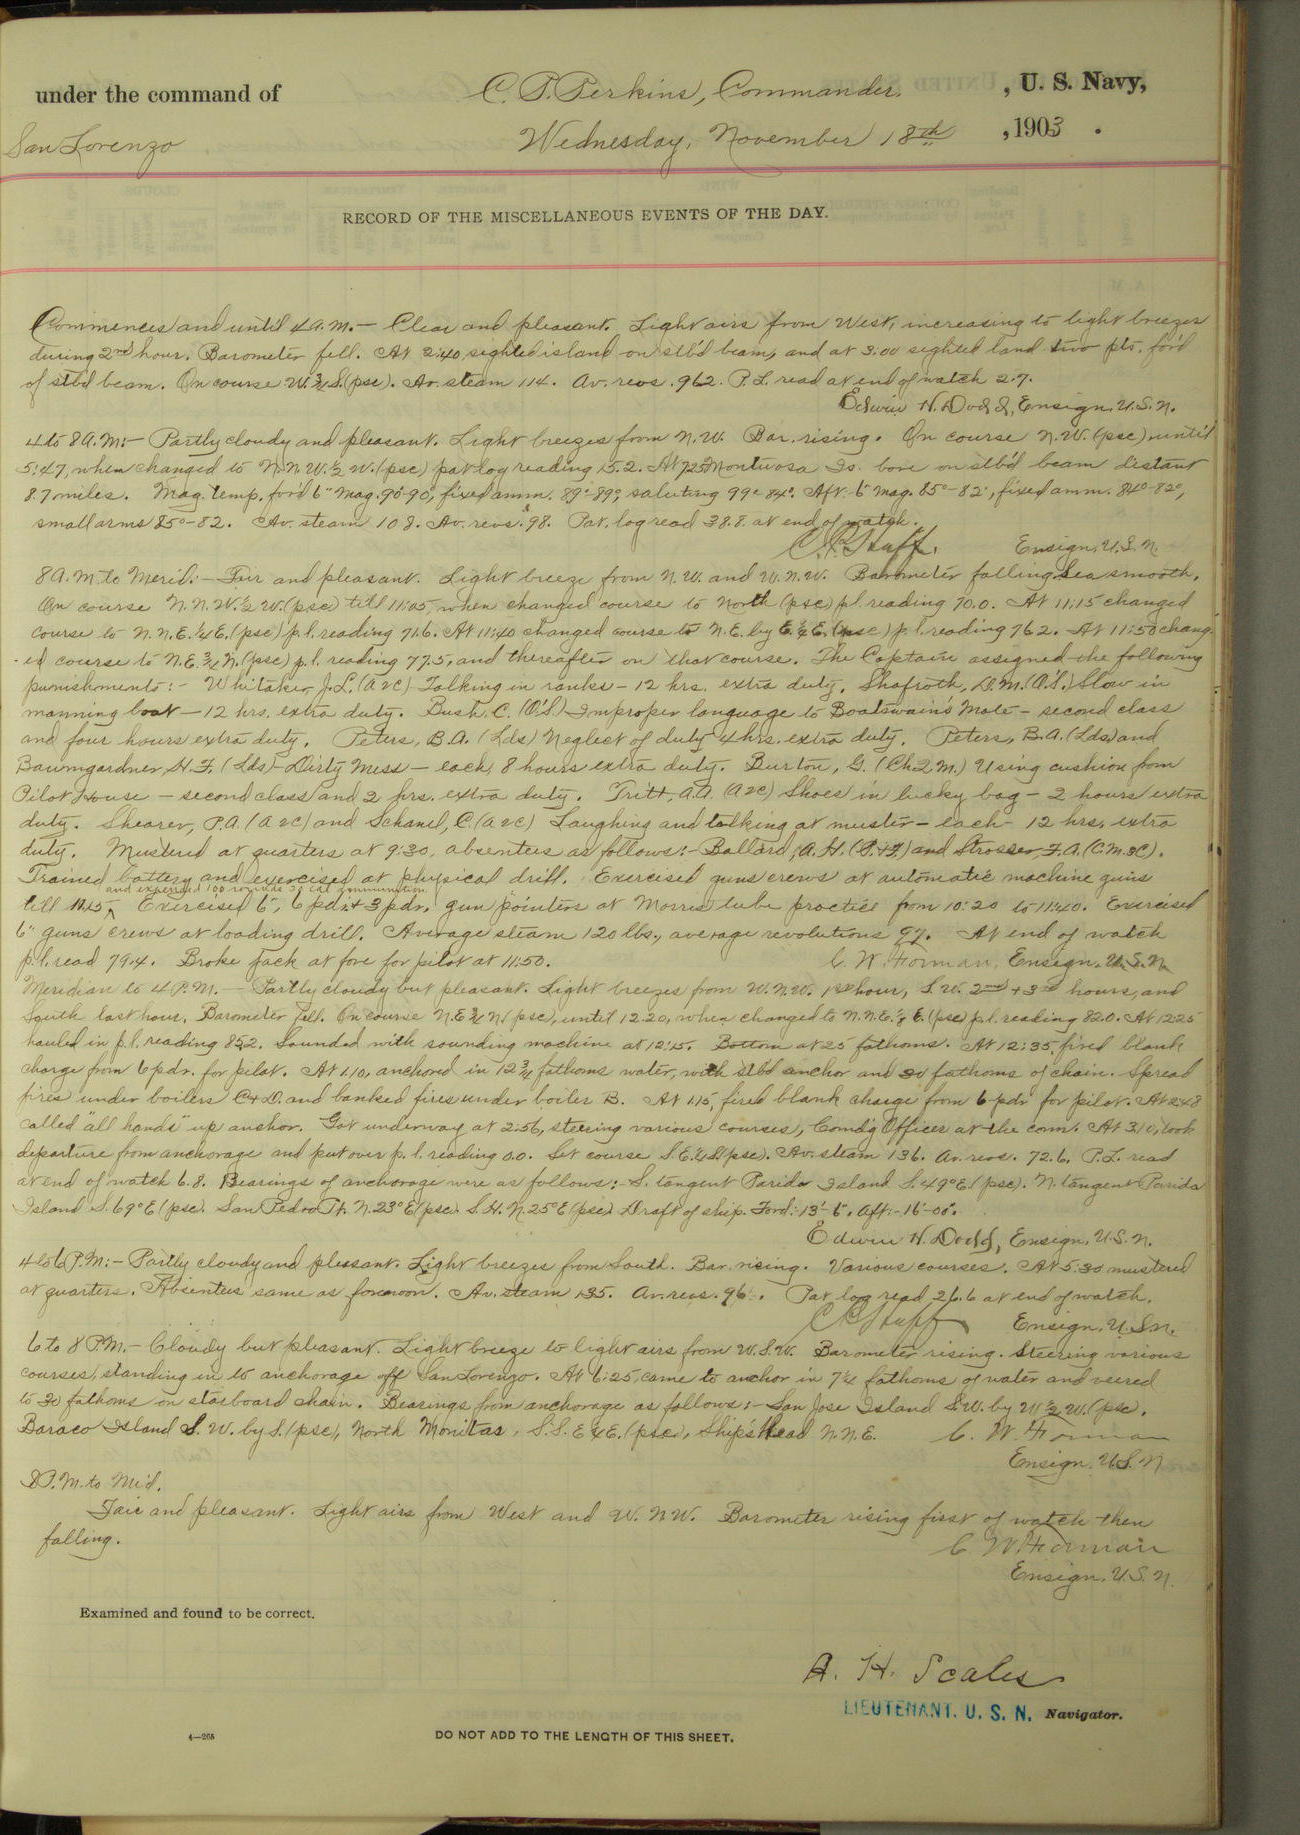 under the command of C. P. Perkins, Commander. , U. S. Navy,
San Lorenzo Wednesday, November 18th , 1903 .
RECORD OF THE MISCELLANEOUS EVENTS OF THE DAY.
Commences and until 4 a.m. — Clear and pleasant. Light airs from West, increasing to light breezes
during 2nd hour. Barometer fell. At 2:40 sighted island on stb'd beam, and at 3:00 sighted land two pts. for'd
of stb'd beam. On course W. 3/4 S. (psc). Av. steam 114. Av. revs. 96.2. P.L. read at end of watch 2.7.
Edwin H. Dodd, Ensign, U.S.N.
4 to 8 A.M:— Partly cloudy and pleasant. Light breezes from N.W. Bar. rising. On course N.W. (psc) until
5:47, when changed to N.N.W. 1/2 W. (psc) pat log reading 15.2. At 7:25 Montuosa Is. bore on stb'd beam distant
8.7 miles. Mag. temp. for'd 6" Mag. 90°-90°, fixed amm. 89°-89°, saluting 99°-84°. Aft. 6" mag. 85°-82°, fixed amm. 84°-82°,
small arms 85°-82. Av. steam 108. Av. revs. 98. Pat. log read 38.8 at end of watch.
Ensign, U.S.N.
8 A.M. to Merid:— Fair and pleasant. Light breeze from N.W. and W.N.W. Barometer falling. Sea smooth.
On course N.N.W. 1/2 W. (psc) till 11:05, when changed course to North (psc) p.l. reading 70.0. At 11:15 changed
course to N.N.E. 1/4 E. (psc) p.l. reading 71.6. At 11:40 changed course to N.E. by E. 1/4 E. (psc) p.l. reading 76.2. At 11:50 chang-
-ed course to N.E. 3/4 N. (psc) p.l. reading 77.5, and thereafter on that course. The Captain assigned the following
punishments:— Whitaker, J.L. (A 2 C) Talking in ranks — 12 hrs. extra duty. Shafroth, D.M. (O.S.) Slow in
manning boat — 12 hrs. extra duty. Bush, C. (O.S.) Improper language to Boatswain's Mate — second class
and four hours extra duty. Peters, B.A. (Lds) Neglect of duty 4 hrs. extra duty. Peters, B.A. (Lds) and
Baumgardner, H.F. (Lds) — Dirty Mess — each, 8 hours extra duty. Burton, G. (Ch 2 M.) Using cushion from
Pilot House — second class and 2 hrs. extra duty. Tritt, A.A. (A 2 C) Shoes in lucky bag — 2 hours extra
duty. Shearer, P.A. (A 2 C) and Schanel, C. (A 2 C) Laughing and talking at muster — each 12 hrs. extra
duty. Mustered at quarters at 9:30, absentees as follows:— Ballard, A.H. and Strosser, F.A.
Trained battery and exercised at physical drill. Exercised guns crews at automatic machine guns
and expended 100 rounds 30 cal ammunition
till 10:15. Exercised 6", 6 pdr. + 3 pdr. gun pointers at Morris tube practice from 10:20 to 11:40. Exercised
6" guns crews at loading drill. Average steam 120 lbs., average revolutions 97. At end of watch
p.l. read 79.4. Broke jack at fore for pilot at 11:50. C. W. Forman, Ensign, U.S.N.
Meridian to 4 P.M. — Partly cloudy but pleasant. Light breezes from W.N.W. 1st hour, S.W. 2nd + 3rd hours, and
South last hour. Barometer fell. On course N.E. 3/4 N. (psc), until 12:20, when changed to N.N.E. E. (psc) p.l. reading 82.0. At 12:25
hauled in p.l. reading 83.2. Sounded with sounding machine at 12:15. Bottom at 25 fathoms. At 12:35 fired blank
charge from 6 pdr. for pilot. At 1:10, anchored in 12 3/4 fathoms water, with stb'd anchor and 30 fathoms of chain. Spread
fires under boilers C + D and banked fires under boiler B. At 1:15, fired blank charge from 6 pdr for pilot. At 2:48
called "all hands" up anchor. Got underway at 2:56, steering various courses, Comd'g Officer at the conn. At 3:10, took
departure from anchorage and put over p.l. reading 0.0. Set course S.E. 1/4 S. (psc). Av. steam 136. Av. revs. 72.6. P.L. read
at end of watch 6.8. Bearings of anchorage were as follows:— S. tangent Parida Island S. 49° E. (psc). N. tangent Parida
Island S. 69° E (psc). San Pedro Pt. N. 23° E (psc). S.H. N. 25° E (psc). Draft of ship. Ford:- 13'-6". Aft:- 16'-00".
Edwin H. Dodd, Ensign, U.S.N.
4 to 6 P.M:— Partly cloudy and pleasant. Light breezes from South. Bar. rising. Various courses. At 5:30 mustered
at quarters. Absentees same as forenoon. Av. steam 135. Av. revs. 96. Pat log read 26.6 at end of watch.
Ensign, U.S.N.
6 to 8 P.M.— Cloudy but pleasant. Light breeze to light airs from W.S.W. Barometer rising. Steering various
courses, standing in to anchorage off San Lorenzo. At 6:25, came to anchor in 7 1/4 fathoms of water and veered
to 30 fathoms on starboard chain. Bearings from anchorage as follows:— San Jose Island S.W. by W 1/2 W. (psc).
Baraco Island S.W. by S. (psc), North Monitas, S.S.E. 1/4 E. (psc), Ship's Head N.N.E. C. W. Forman
Ensign, U.S.N
8 P.M. to Mid.
Fair and pleasant. Light airs from West and W.N.W. Barometer rising first of watch then
falling. C. W. Forman
Ensign, U.S.N.
Examined and found to be correct.
A. H. Scales
LIEUTENANT. U. S. N. Navigator.
4—265 DO NOT ADD TO THE LENGTH OF THIS SHEET.